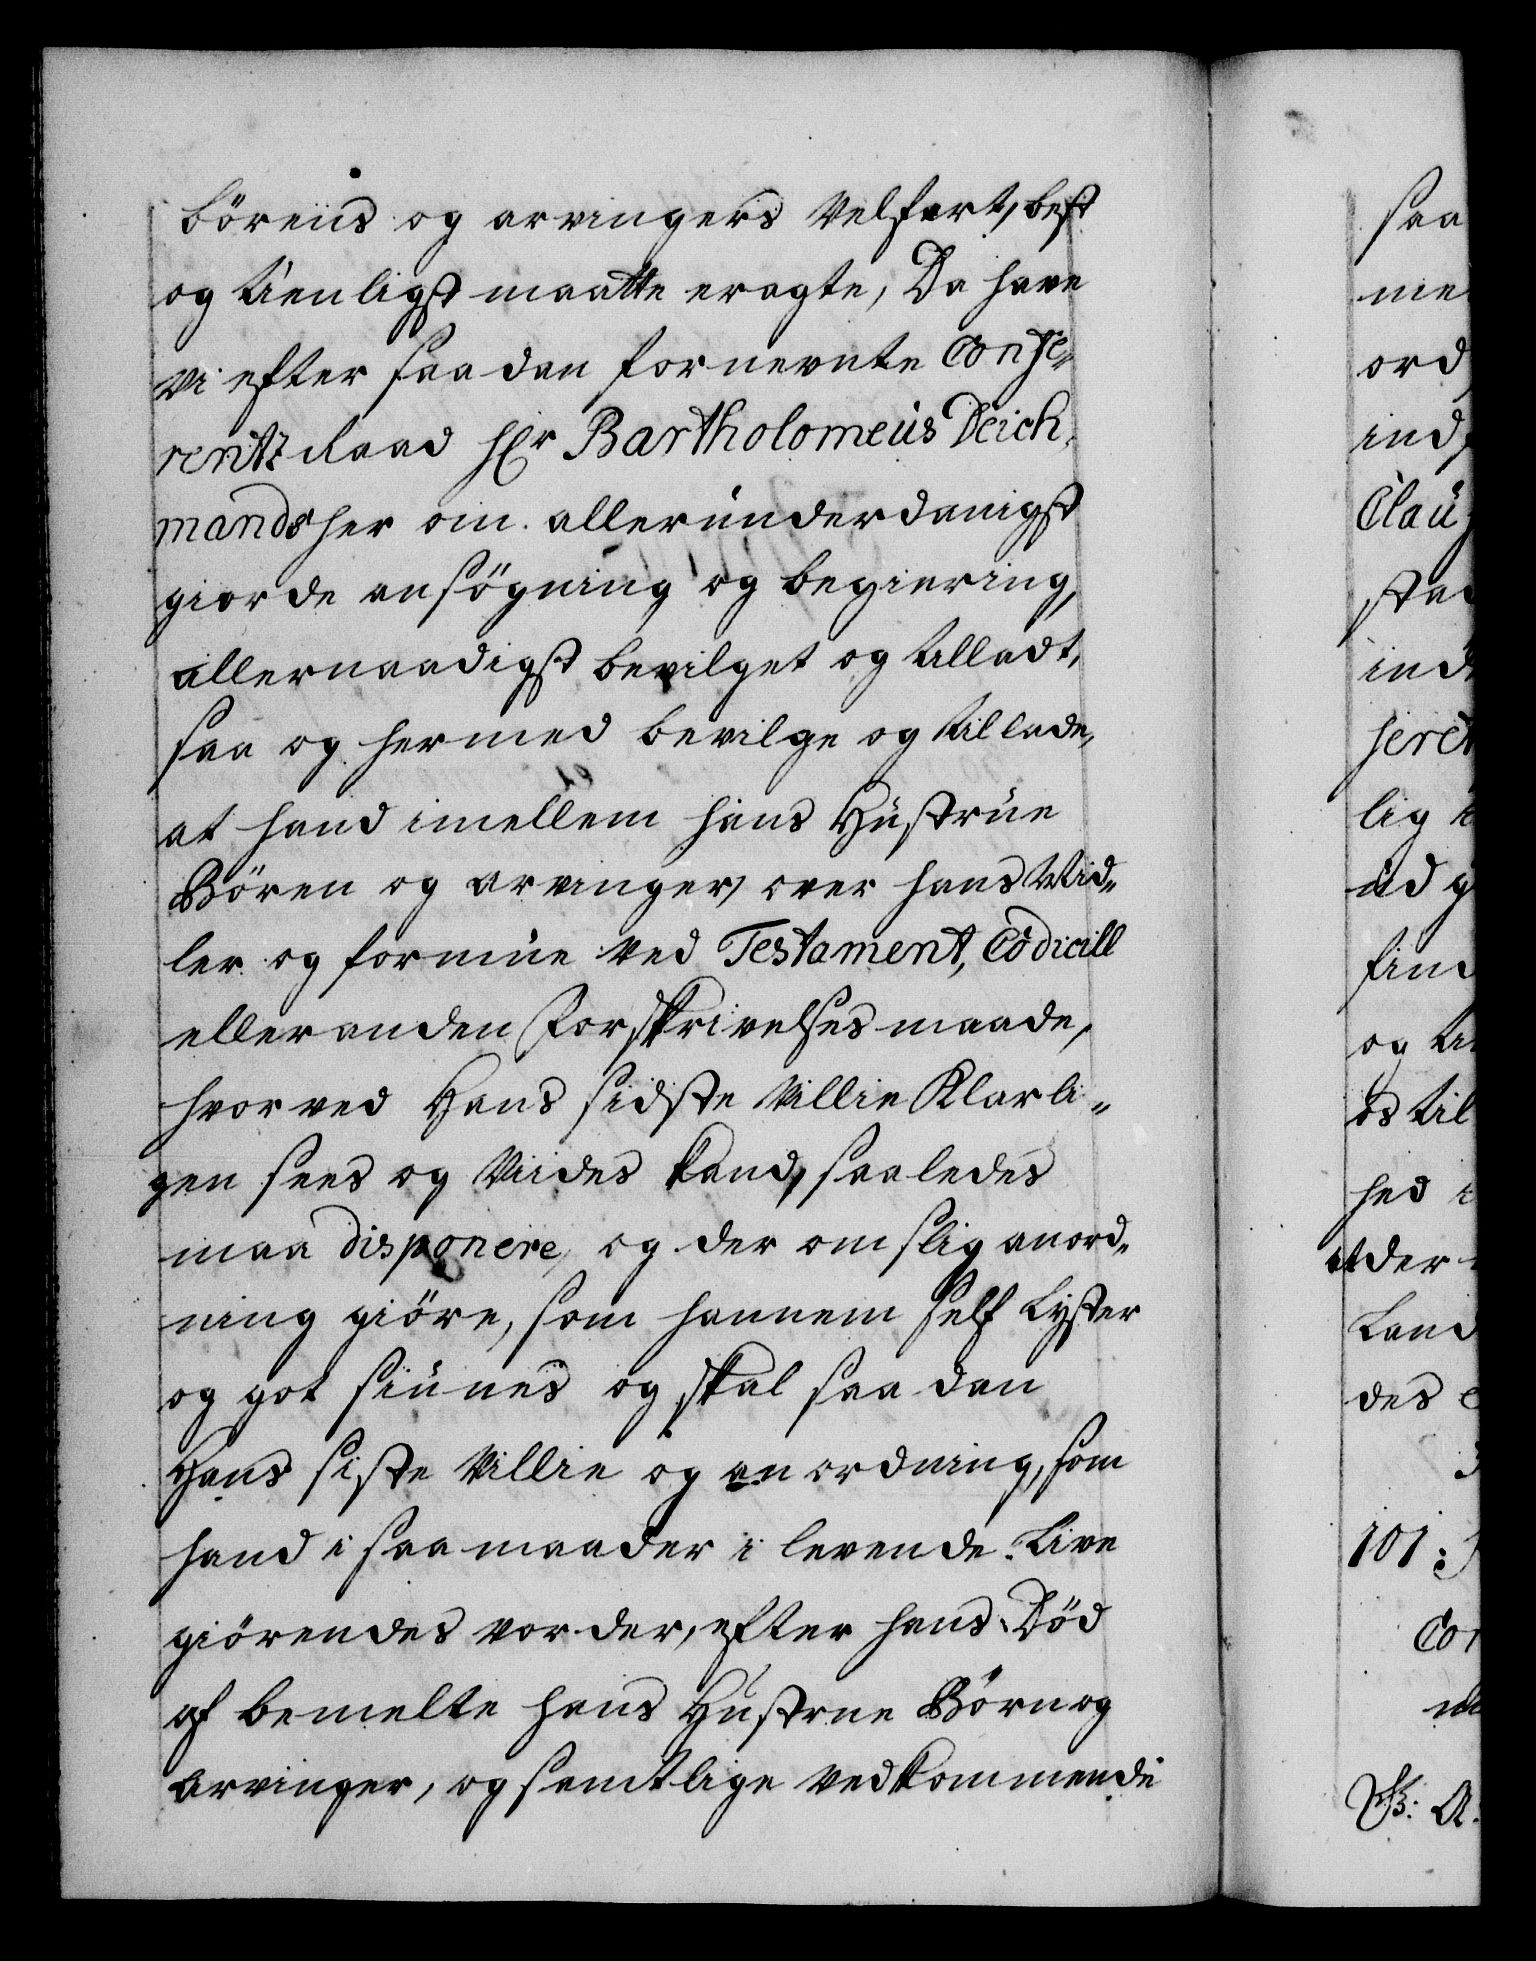 börens og arvingers Velfert, best
og tienligst maatte eragte, Da have
vi efter saadan fornevnte Confe-
rentz Raad Hr Bartholomeus Deich-
mands her om allerunderdanigst
giorde ansögning og begiering,
allernaadigst bevilget og tilladt,
saa og hermed bevilge og tillade,
at hand imellem hans Hustrue
Bören og arvinger, over hans Mid-
ler og formue ved Testament, Codicill
eller anden Forskrivelses maade,
hvorved Hans sidste Villie Klarli-
gen sees og Viides kand, saaledes
maa disponere, og der om slig anord-
ning giöre, som hannem self Lyster
og got siunes og skal saadan
Hans siste Villie og anordning, som
hand i saa maader i levende Live
giörendes vorder, efter hans Död
af bemelte hans Hustrue Börn og
arvinger, og samtlige vedkommende
saa
ord
ind
Clau
stad
ind
lig
ud g
find
og
os til
hed
at der
Land
des
101:
Con